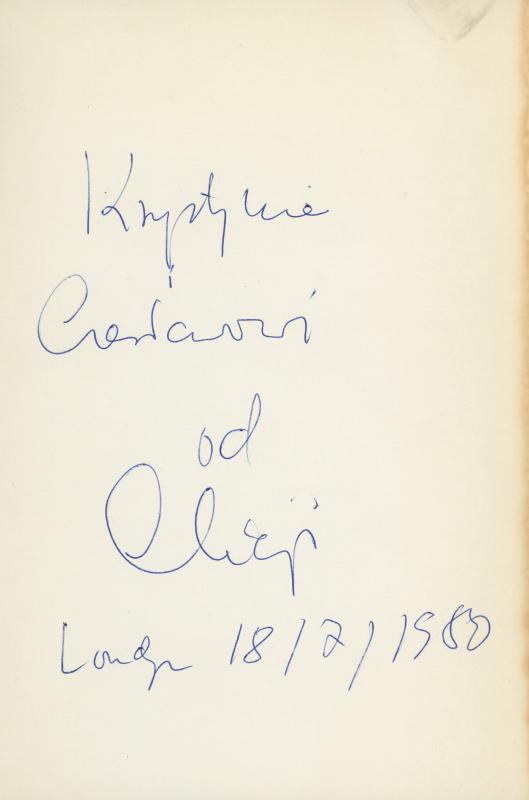 Krystynie
i
Czesławowi
od
Alicji
Londyn 18/7/1980